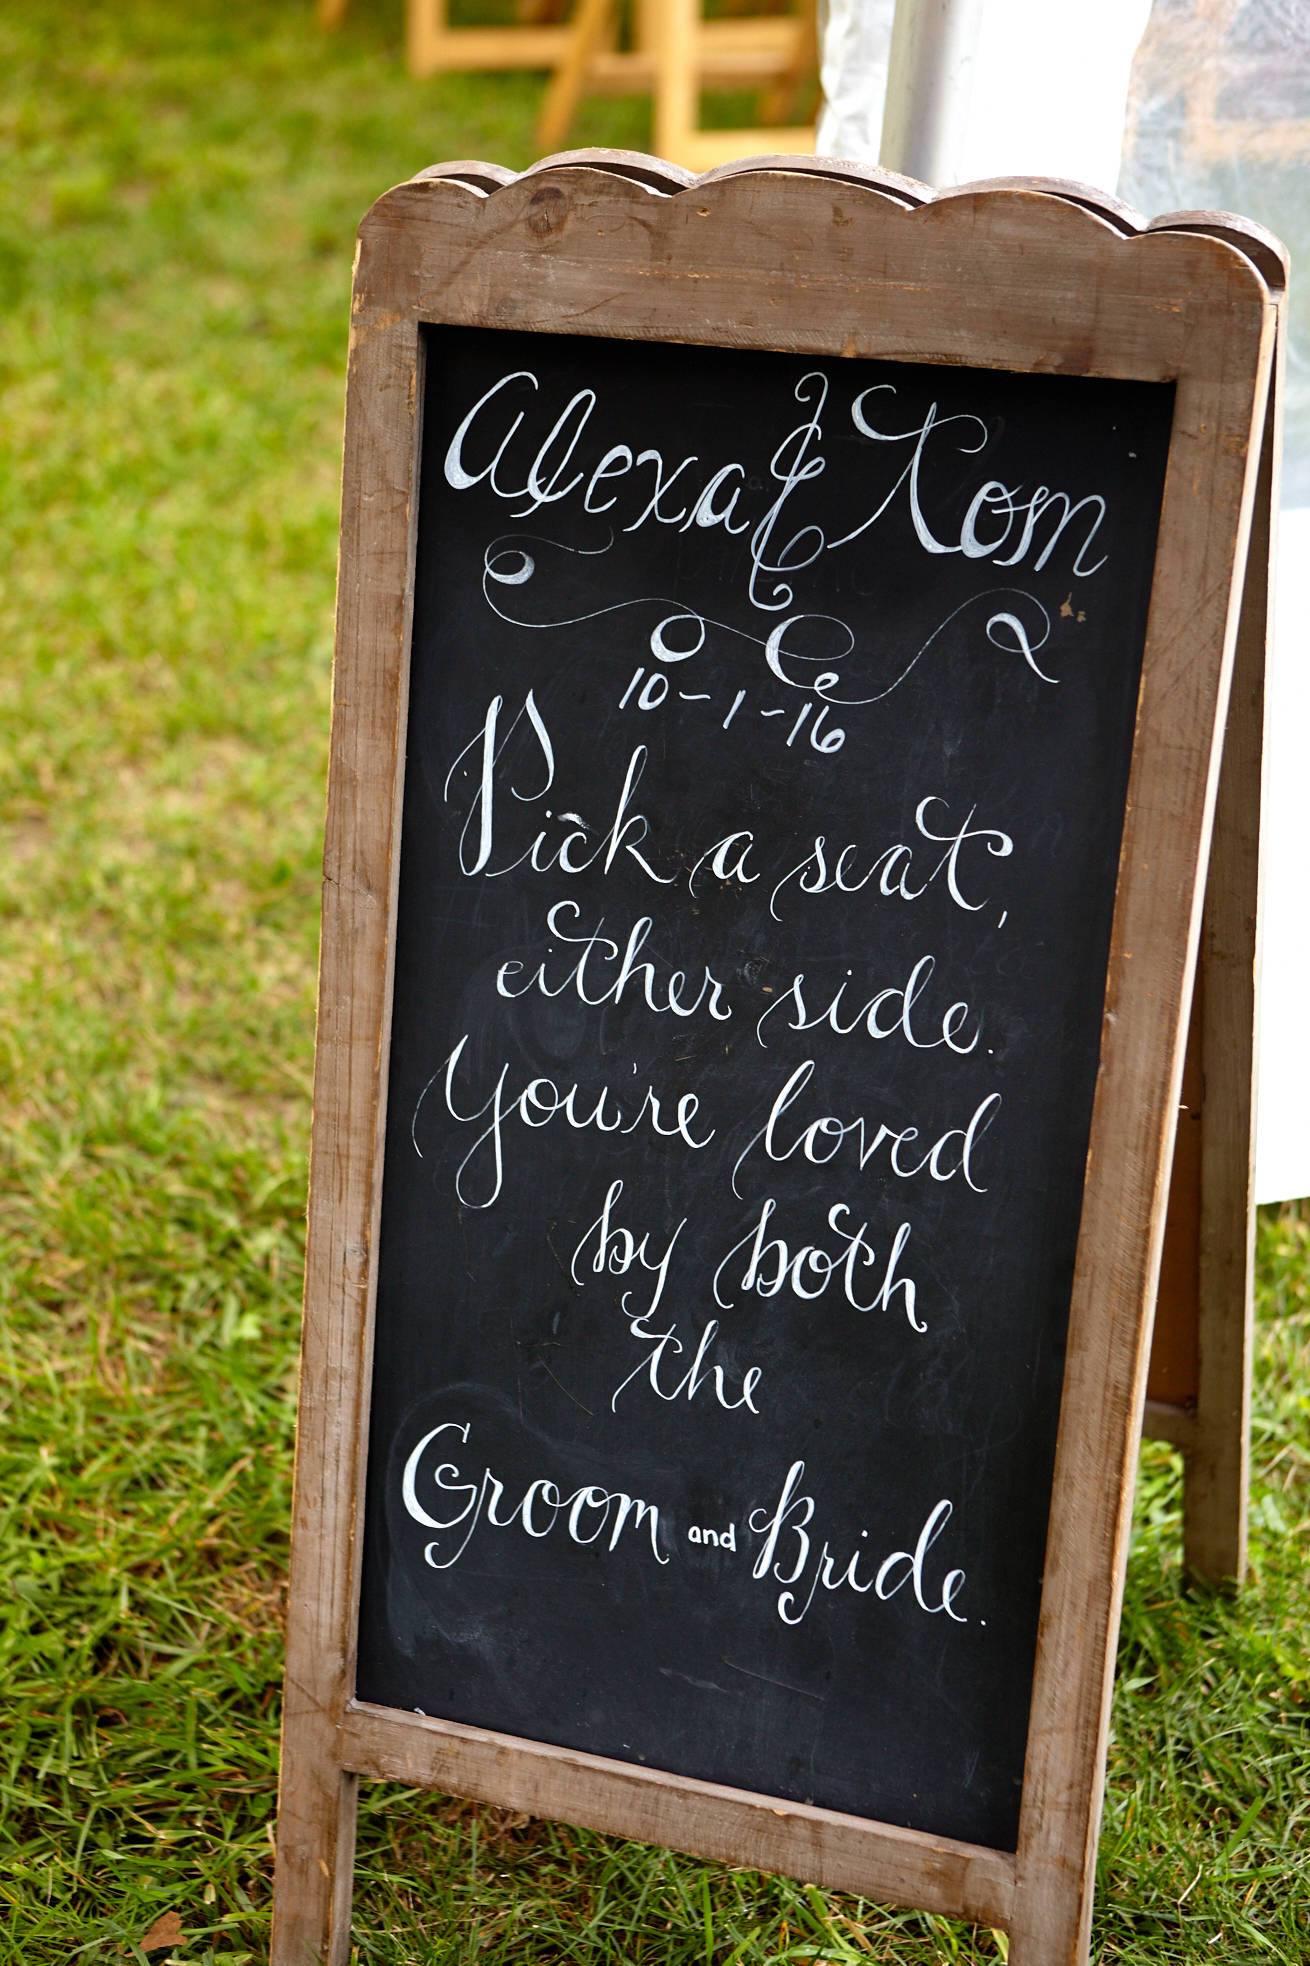 Alexa & Tom
10-1-16
Pick a seat,
either side.
You're loved
by both
the
Groom and Bride.